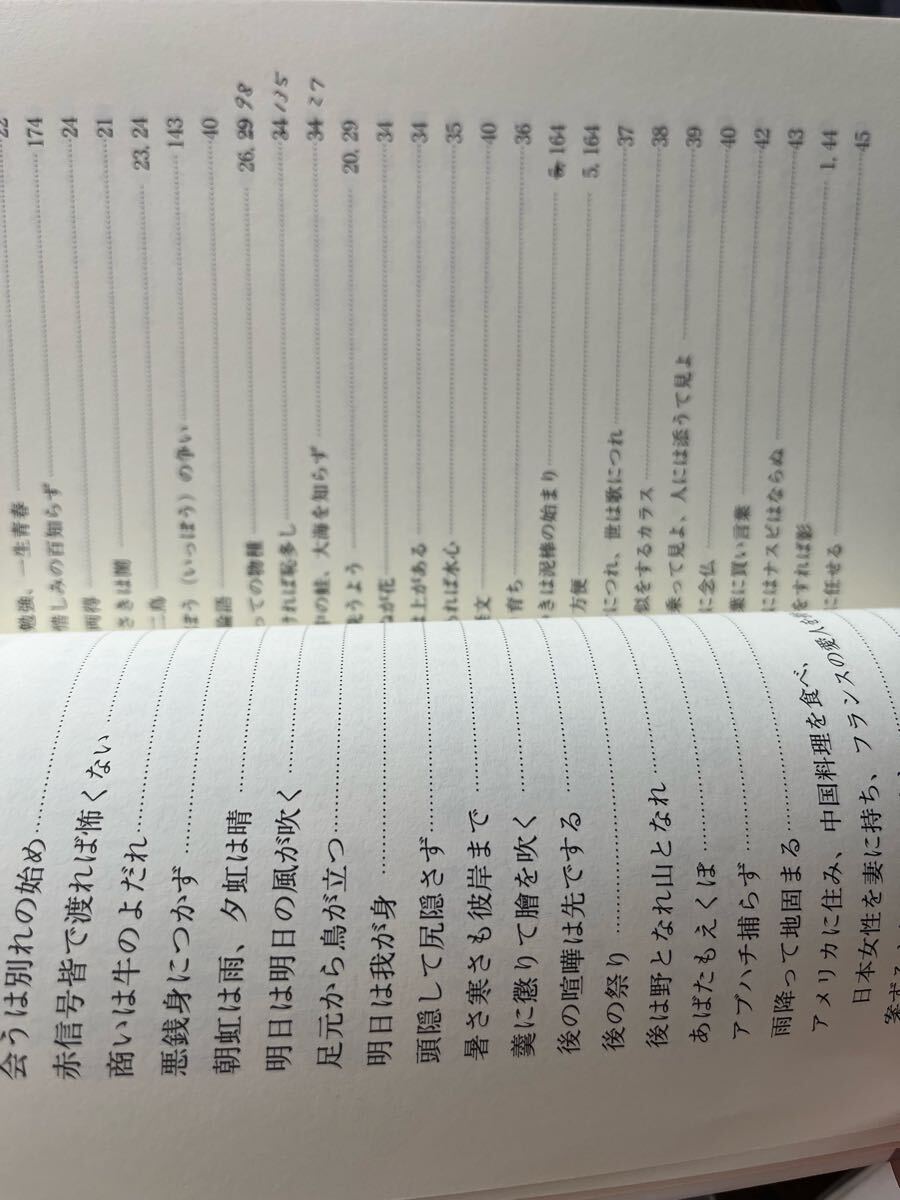 会うは別れの始め
赤信号皆で渡れば怖くない
商いは牛のよだれ
悪銭身につかず
朝虹は雨、夕虹は晴
明日は明日の風が吹く
足元から鳥が立つ
明日は我が身
頭隠して尻隠さず
暑さ寒さも彼岸まで
羹に懲りて膾を吹く
後の喧嘩は先でする
後の祭り
後は野となれ山となれ
あばたもえくぼ
アブハチ捕らず
雨降って地固まる
アメリカに住み、中国料理を食べ、
日本女性を妻に持ち、フランスの愛人を
22
勉強、一生青春 174
惜しみの百知らず 24
両得 21
さきは闇 23, 24
二鳥 143
ぼう(いっぽう)の争い 40
論語
っての物種 26, 29 98
ければ恥多し 34 135
中の蛙、大海を知らず 34 27
発うよう 20, 29
ぬが花 34
上がある 34
あれば水心 35
証文 40
育ち 36
きは泥棒の始まり 164
方便 5, 164
につれ、世は歌につれ 37
似をするカラス 38
乗って見よ、人には添うて見よ 39
に念仏 40
葉に買い言葉 42
にはナスビはならぬ 43
をすれば影 1, 44
に任せる 45